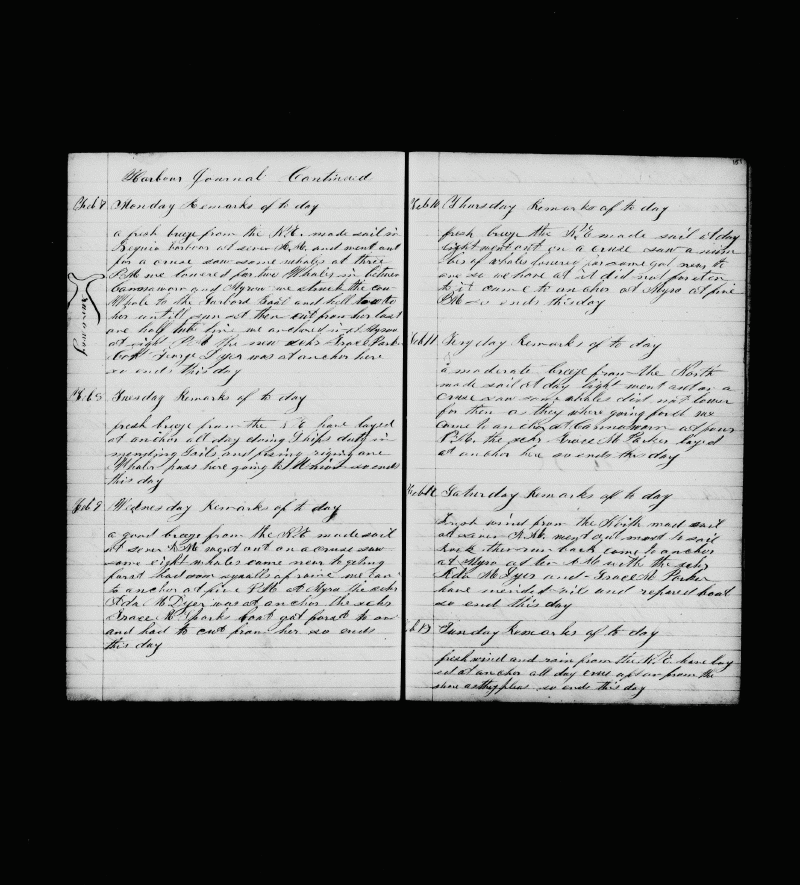 Harbour Journal Continued
Feb 7 Monday Remarks of to day
a fresh breeze from the N.E. made sail in
Bequia harbour at seven A.M. and went out
for a cruse saw some whales at three
P.M we lowered for two Whales in between
Cannawan and Myrow we struck the cow
Whale to the Larbord Boat and held to
her until sun set then cut from her lost
one half tub line we anchored in at Myrow
at eight P.M the new schr Grace Park
Capt George Dyer was at anchor here
so ends this day
Feb 8 Tuesday Remarks of to day
fresh breeze from the N E have layed
at anchor all day doing Ships duty in
mending Sails and fixing riging one
Whaler pass here going to Union so ends
this day
Feb 9 Wednesday Remarks of to day
a good breeze from the N.E made sail
at seven A.M went out on a cruse saw
some eight whales came near to geting
farst had som squalls of rain we can
to anchor at five P.M at Myro the schr
Ada M Dyer was at anchor the schr
Grace M parks boat got farst to one
and had to cut from her so ends
this day
151
Feb 10 Thursday Remarks of to day
fresh breeze the N.E made sail at day
light went out on a cruse saw a num
ber of whales lowered for some got near to
one so we hove at it did not farsten
to it came to anchor at Myro at five
P.M so ends this day
Feb 11 Fryday Remarks of to day
a moderate breeze from the North
made sail at day light went out on a
cruse saw some whales did not lower
for then as they where going fast we
came to anchor at Cannawan at four
P.M. the schr Grace M Parker layed
at anchor here so ends this day
Feb 12 Saturday Remarks of to day
Fresh wind from the North mad sail
at seven A.M. went out most to sail
Rock then run back came to anchor
at Myro at ten A.M with the schr
Ada M Dyer and Grace M Parker
have mended sails and repared boat
so end this day
Feb 13 Sunday Remarks of to day
fresh wind and rain from the N.E. have lay
ed at anchor all day crus off an from the
shore as they pleas so ends this day